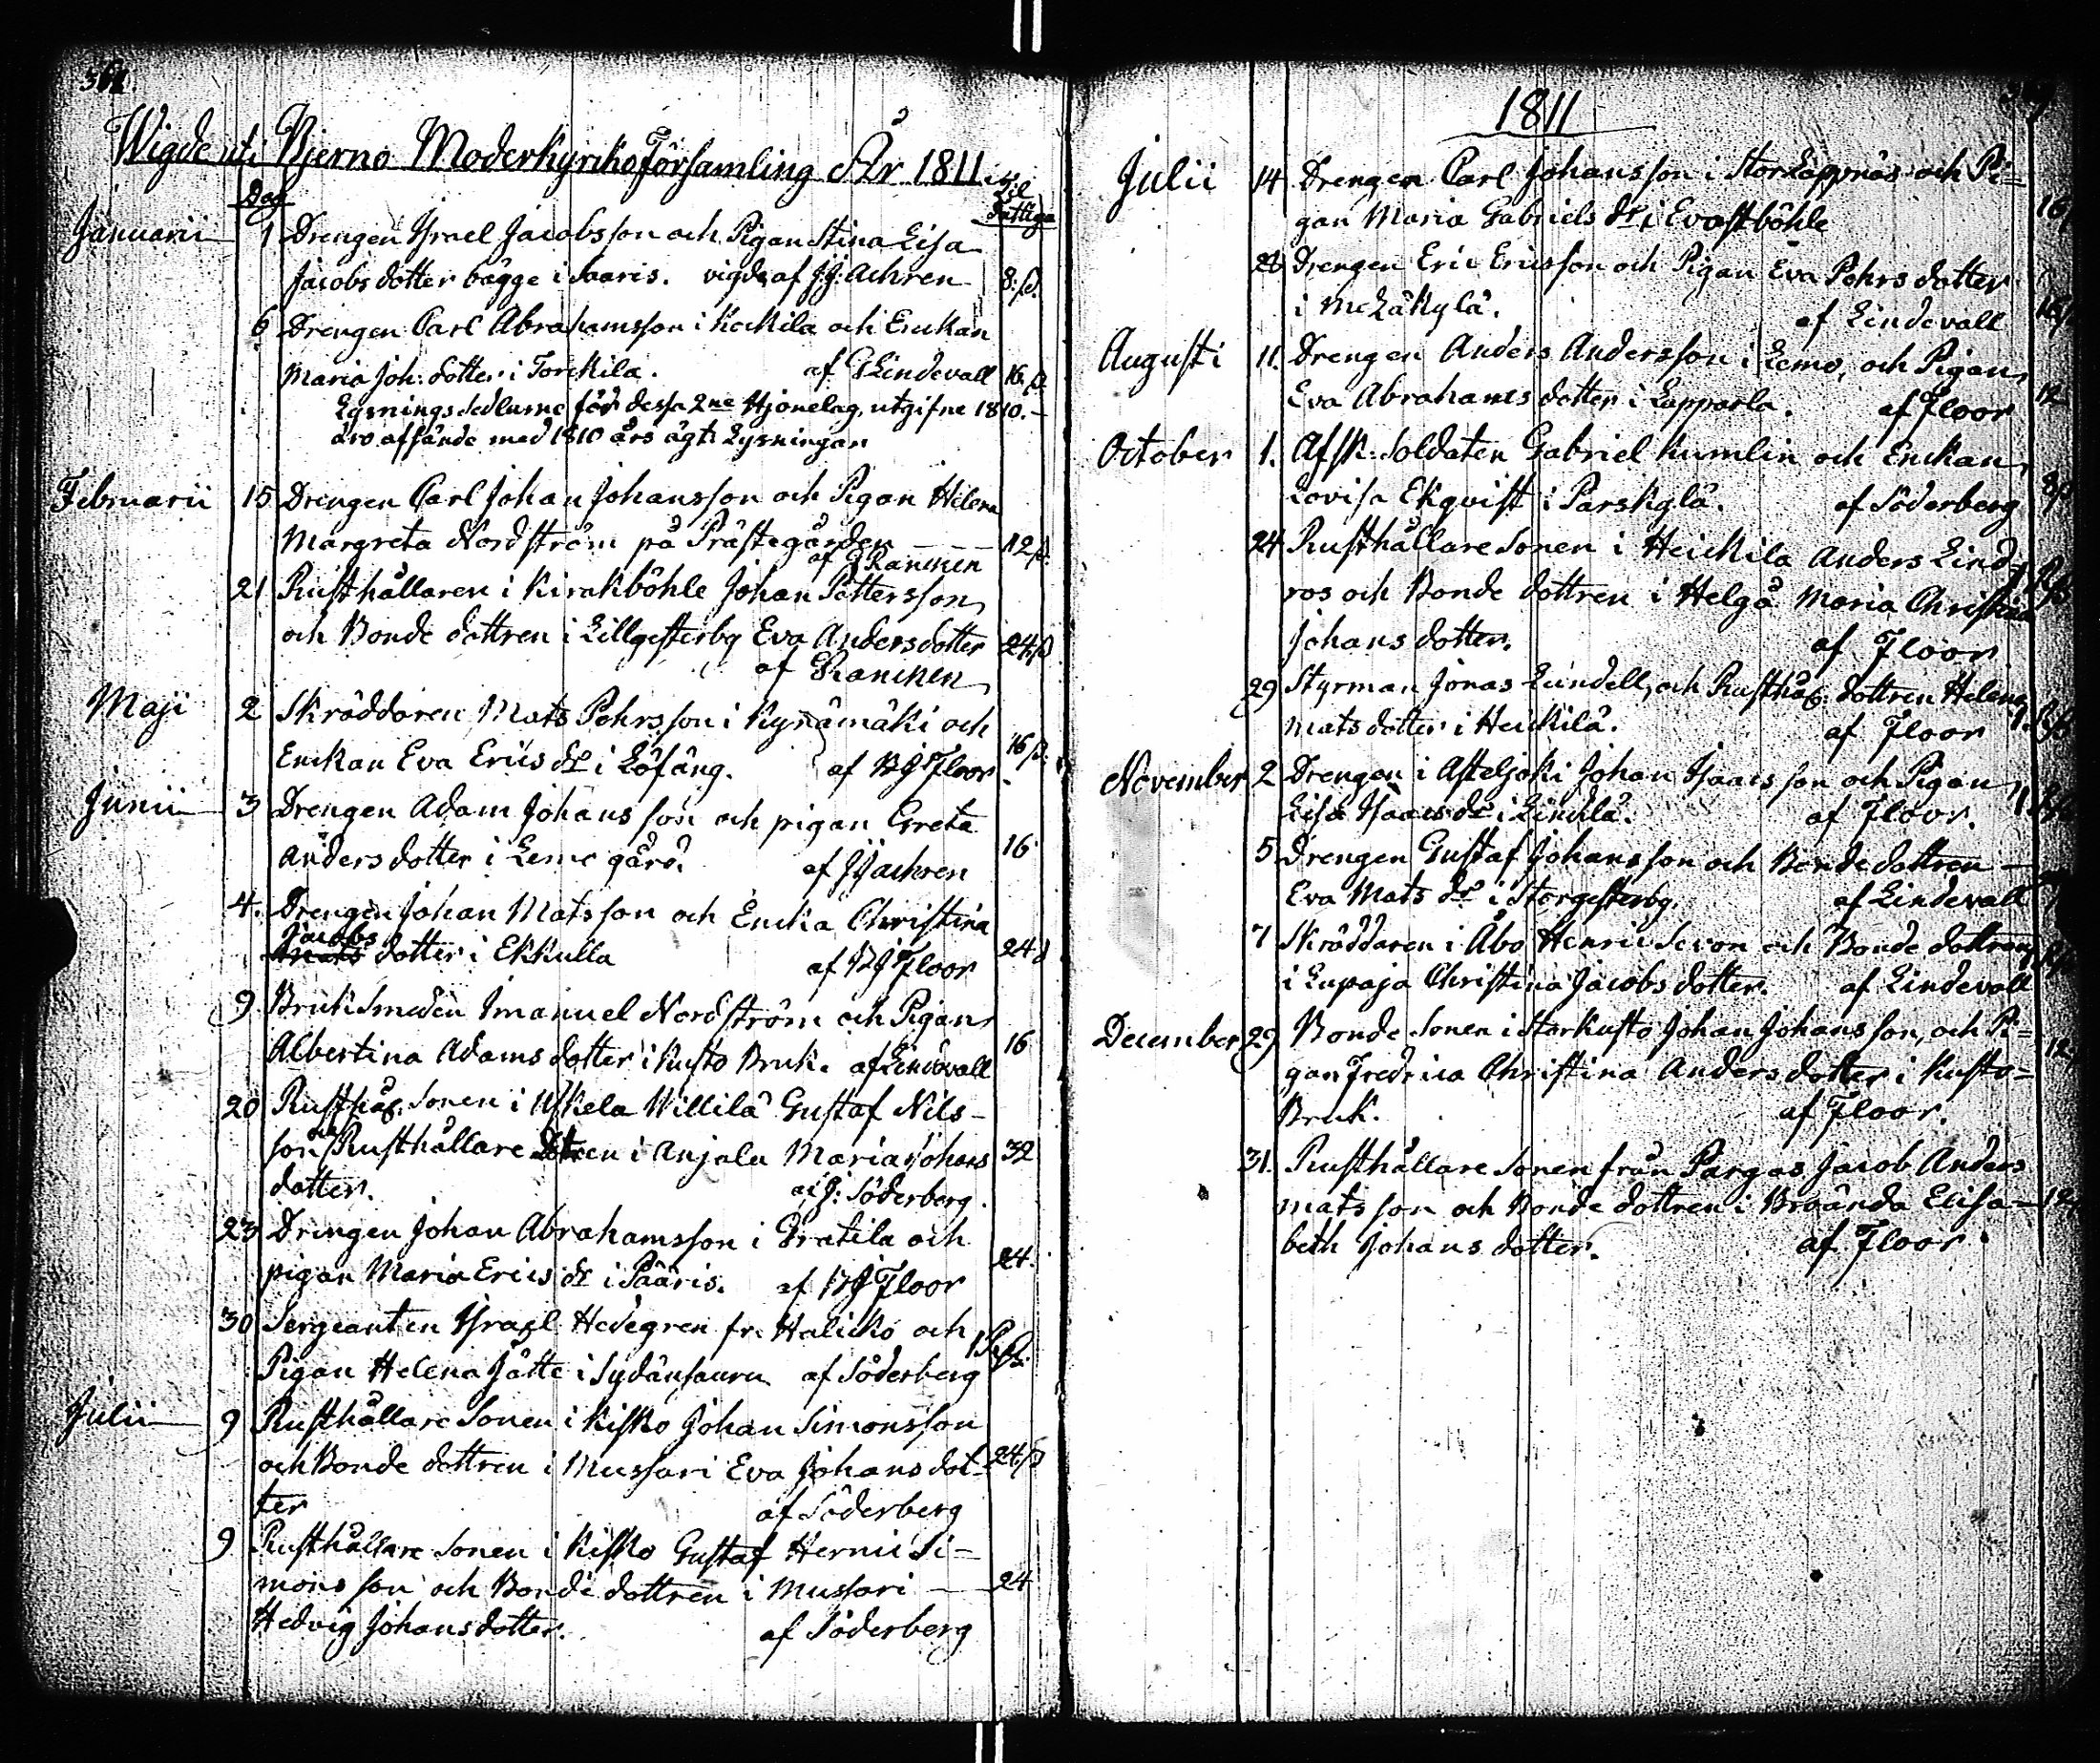 Wigde uti Bjerno Moderkyrko Församling År 1811.
Dag
Til
fattiga
Januarii 1 Drengen Israel Jacobsson och Pigan Stina Lisa
Jacobs dotter bägge i Saaris. vigde af J:J: Achren 8:ß.
6 Drengen Carl Abrahamsson i Kockila och Enckan
Maria Joh: dotter i Torckila. af G Lindevall 16.ß.
Lysnings Sedlarne för dessa 2ne Hjonelag, utgifne 1810.
äro afsände med 1810 års ägt: Lysningar
Februarii 15 Drengen Carl Johan Johansson och Pigan Helena
Margreta Nordström på Prästegården 12ß.
af Rancken
21 Rusthållaren i Kirakböhle Johan Pettersson
och Bonde dottren i Lillgesterby Eva Andersdotter 24ß
af Rancken
Maji 2 Skräddaren Mats Pehrsson i Kynämäki och
Enckan Eva Erics dr i Löfäng. af BJ Floor 16 ß.
Junii 3 Drengen Adam Johansson och pigan Greta
Anders dotter i Lemo gård. af JJ Achren 16
4. Drengen Johan Matsson och Encka Christina
Jacobs
Mats dotter i Ekkulla af BJ Floor 24
9 Bruks Smeden Imanuel Nordström och Pigan
Albertina Adams dotter i Kusto Bruk. af Lindevall 16
20 Rusthål. Sonen i Uskela Willilä Gustaf Nils-
son och Rusthållare dottren i Anjala Maria Johans 32
dotter. af J: Söderberg.
23 Drengen Johan Abrahamsson i Gratila och
pigan Maria Erics dr i Pääris. af BJ Floor 24.
30 Sergeanten Israel Hedegren fr. Halicko och
Pigan Helena Jätte i Sydänsauru af Söderberg
Julii 9 Rusthållare Sonen i Kisko Johan Simonsson
och Bonde dottren i Mussari Eva Johans dot- 24.ß
ter af Söderberg
9 Rusthållare Sonen i Kisko Gustaf Henric Si=
mons son och Bonde dottren i Mussari 24
Hedvig Johansdotter. af Söderberg
1811
Julii 14 Drengen Carl Johansson i Storlappnäs och Pi=
gan Maria Gabriels dr i Evastböhle 16
24 Drengen Eric Ericsson och Pigan Eva Pehrs dotter
i Melläkylä. af Lindevall
Augusti 11. Drengen Anders Andersson i Lemo, och Pigan
Eva Abrahams dotter i Lapparla. af Floor 12
October 1. Afsk: Soldaten Gabriel Kumlin och Enckan
Lovisa Ekqvist i Parskylä. af Söderberg 8ß
24 Rusthållare Sonen i Heickila Anders Lind-
ros och Bonde dottren i Helgå Maria Christina
Johans dotter. af Floor
29 Styrman Jonas Lindell, och Rusthål. dottren Helena
Mats dotter i Heickilä. af Floor
November 2 Drengen i Asteljoki Johan Isaacs son och Pigan
Lisa Isaacs dr i Linckla. af Floor.
5 Drengen Gustaf Johansson och Bonde dottren
Eva Mats dr i Storgesterby. af Lindevall
7 Skräddaren i Åbo Henric Sevon och Bonde dottren
i Lupaja Christina Jacobs dotter. af Lindevall
December 29 Bonde Sonen i Storkusto Johan Johansson, och Pi=
gan Fredrica Christina Anders dotter i Kusto= 12
Bruk. af Floor.
31. Rusthållare Sonen från Pargas Jacob Anders
Mats son och Bonde dottren i Broända Elisa-
beth Johans dotter. af Floor